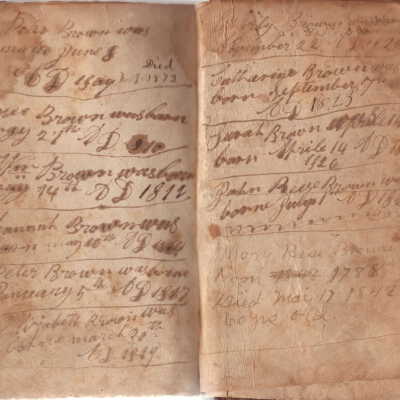 Brown was
June 8
Died
AD 1809 1873
Brown was born
27th AD 1810
Brown was born
14th AD 1812
Hannah Brown was
born may 10th AD 1814
Peter Brown was borne
January 5th AD 1817
Elizabeth Brown was
borne march 20th
AD 1819
Brown
November 22 AD 1820
Catharine Brown was
born September
AD 1823
Sarah Brown
born Aprile 14 AD
1826
John Reese Brown was
borne July 1 AD
Mary Rese Browne
born 1788
Died Mar 17 1842
old